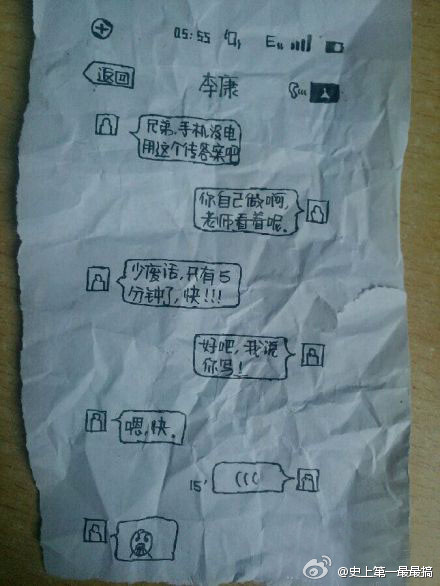 05:55 E
返回
李康
兄弟,手机没电
用这个传答案吧
你自己做啊,
老师看着呢.
少废话,只有5
分钟了,快!!!
好吧,我说
你写!
嗯,快.
15'
@史上第一最最搞